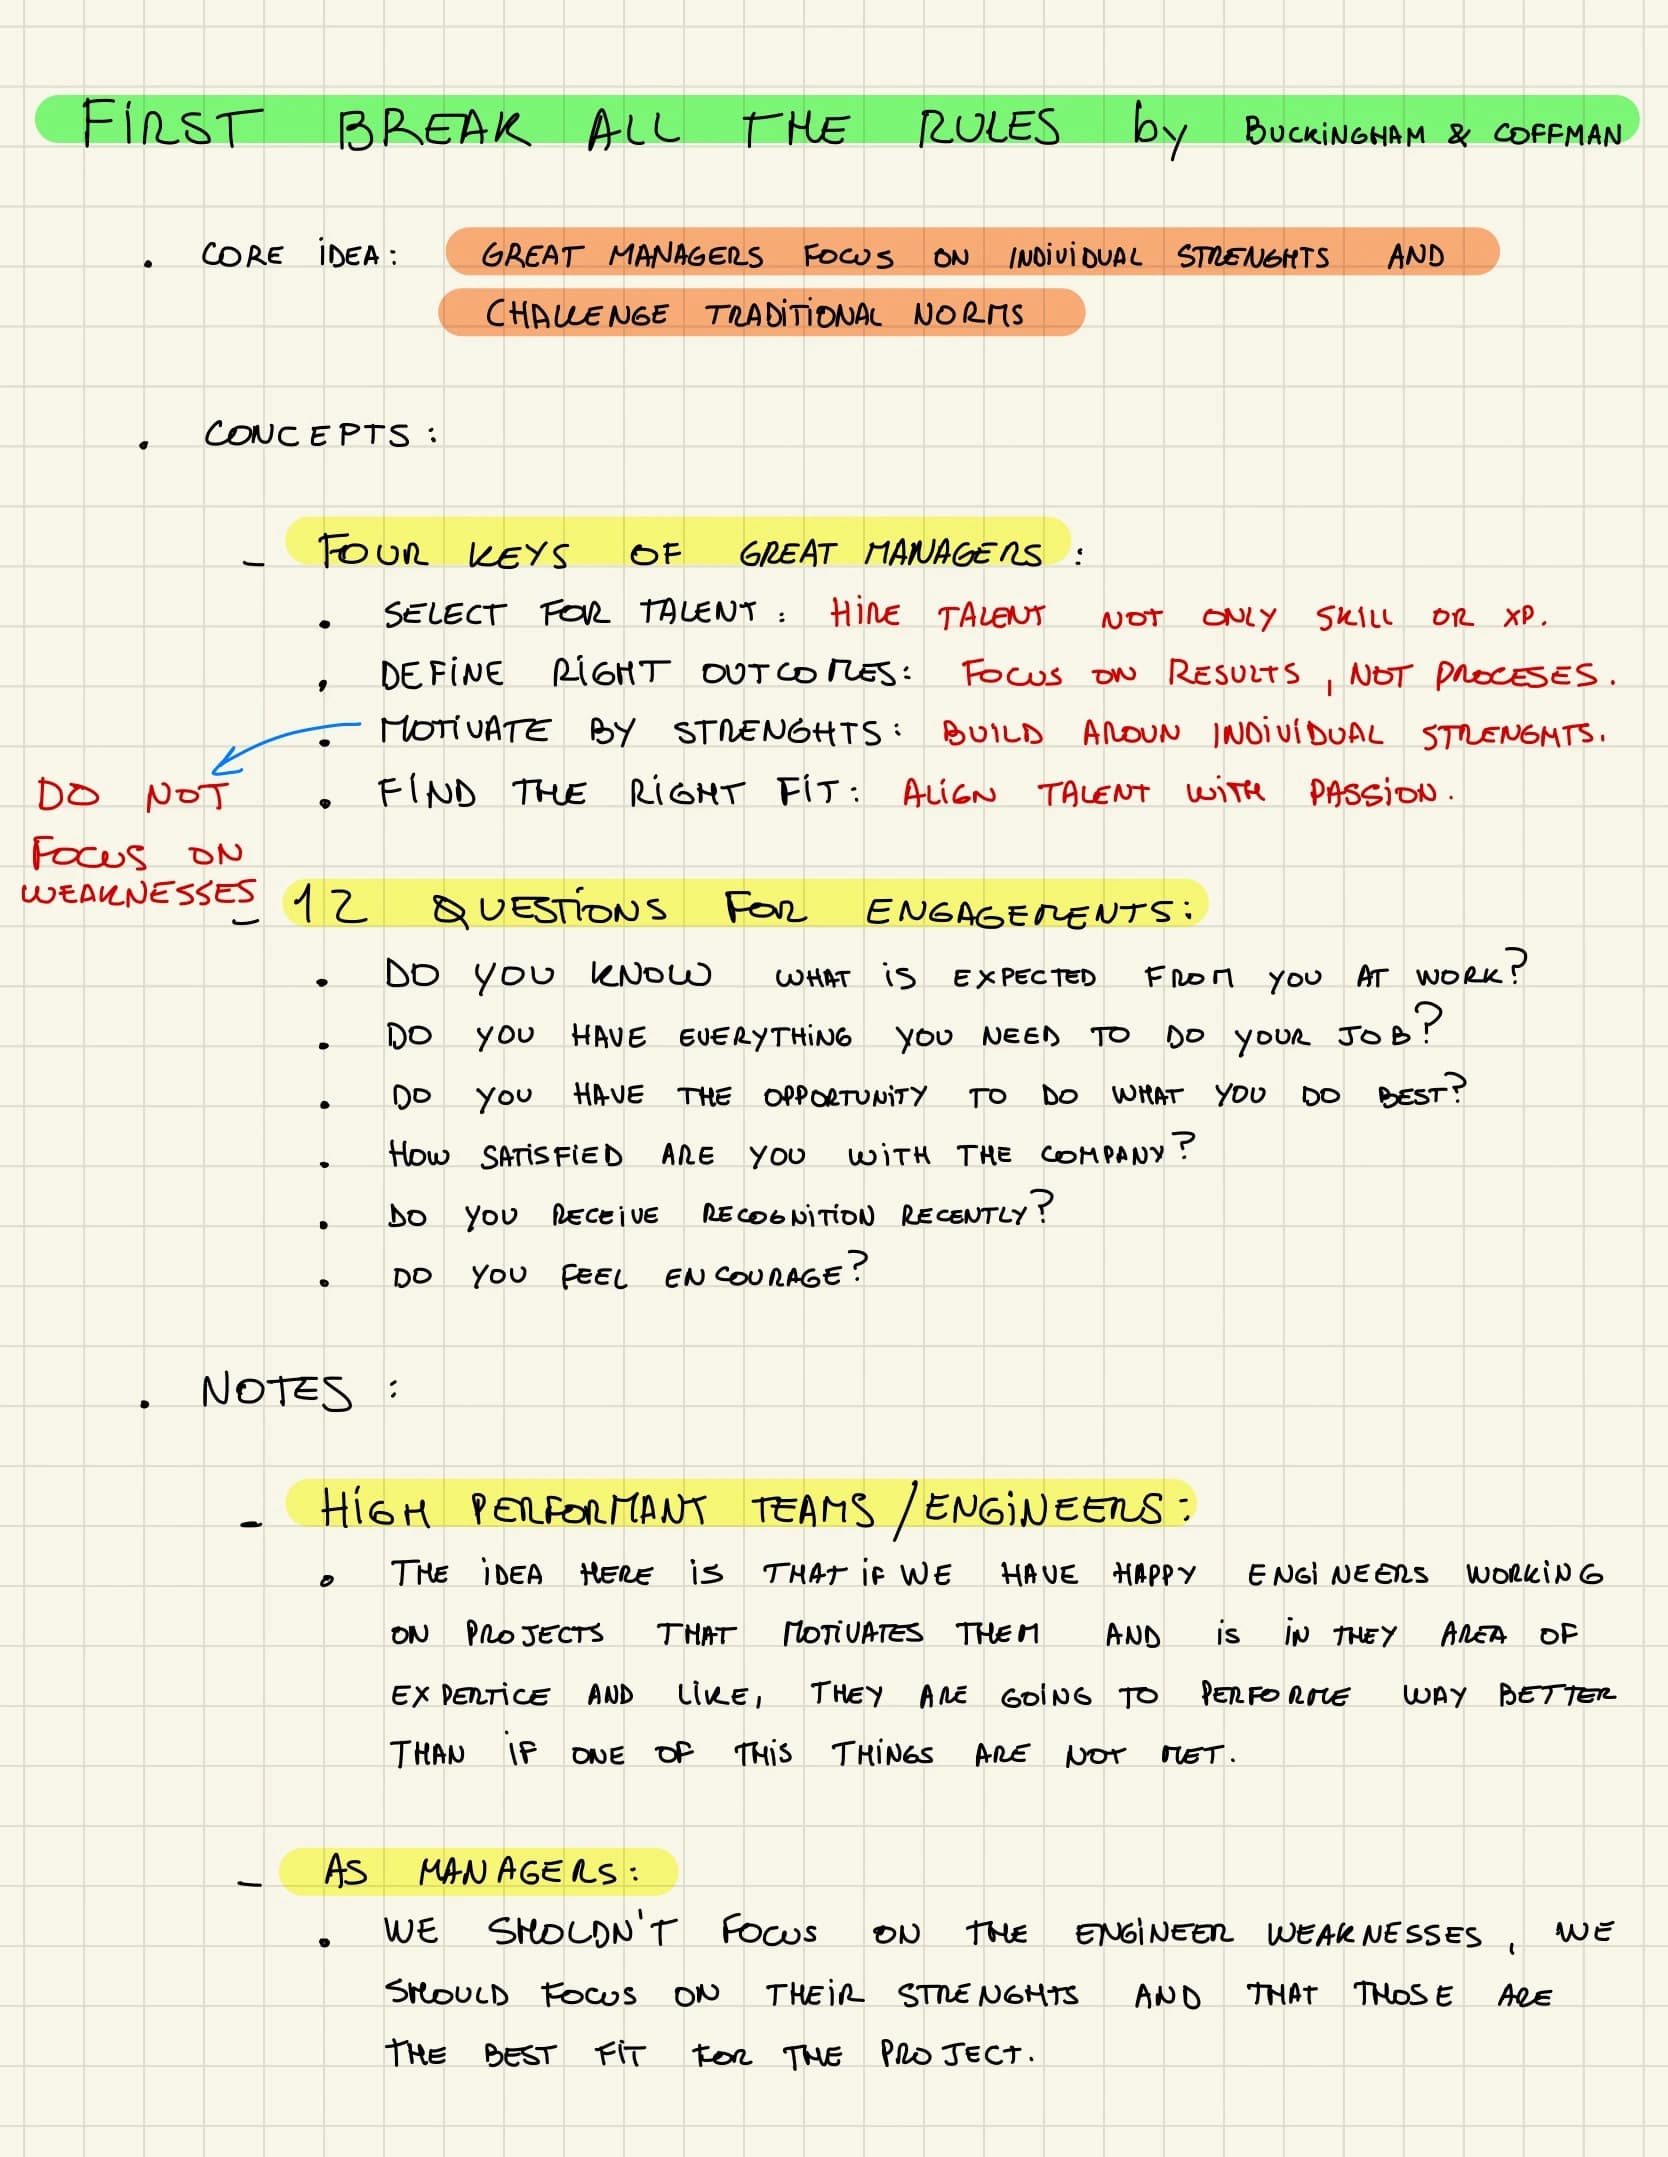 FIRST BREAK ALL THE RULES by BUCKINGHAM & COFFMAN
. CORE IDEA: GREAT MANAGERS FOCUS ON INDIVIDUAL STRENGHTS AND
CHALLENGE TRADITIONAL NORMS
. CONCEPTS:
- FOUR KEYS OF GREAT MANAGERS:
. SELECT FOR TALENT: HIRE TALENT NOT ONLY SKILL OR XP.
. DEFINE RIGHT OUTCOMES: FOCUS ON RESULTS, NOT PROCESES.
. MOTIVATE BY STRENGHTS: BUILD AROUN INDIVIDUAL STRENGHTS.
. FIND THE RIGHT FIT: ALIGN TALENT WITH PASSION.
DO NOT
FOCUS ON
WEAKNESSES
- 12 QUESTIONS FOR ENGAGEMENTS:
. DO YOU KNOW WHAT IS EXPECTED FROM YOU AT WORK?
. DO YOU HAVE EVERYTHING YOU NEED TO DO YOUR JOB?
. DO YOU HAVE THE OPPORTUNITY TO DO WHAT YOU DO BEST?
. HOW SATISFIED ARE YOU WITH THE COMPANY?
. DO YOU RECEIVE RECOGNITION RECENTLY?
. DO YOU FEEL ENCOURAGE?
. NOTES:
- HIGH PERFORMANT TEAMS/ENGINEERS:
. THE IDEA HERE IS THAT IF WE HAVE HAPPY ENGINEERS WORKING
ON PROJECTS THAT MOTIVATES THEM AND IS IN THEY AREA OF
EXPERTICE AND LIKE, THEY ARE GOING TO PERFORME WAY BETTER
THAN IF ONE OF THIS THINGS ARE NOT MET.
- AS MANAGERS:
. WE SHOLDN'T FOCUS ON THE ENGINEER WEAKNESSES, WE
SHOULD FOCUS ON THEIR STRENGHTS AND THAT THOSE ARE
THE BEST FIT FOR THE PROJECT.